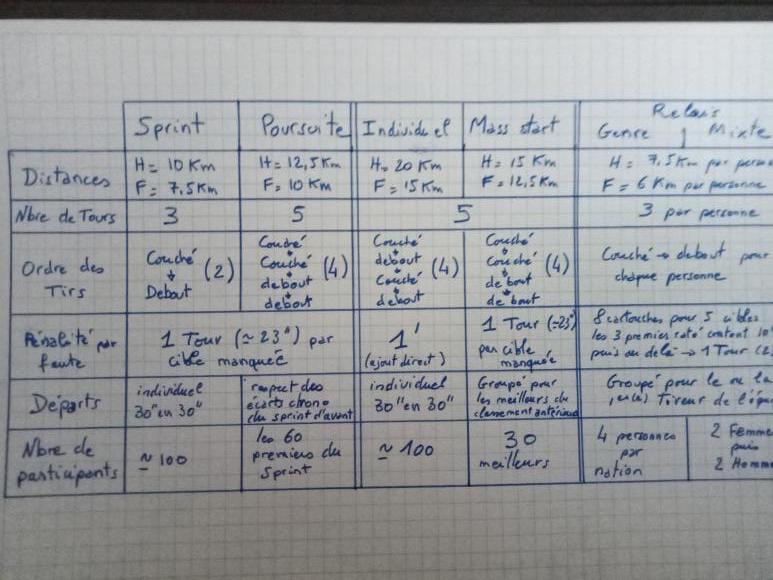 Sprint Poursuite Individuel Mass start Relais
Genre | Mixte
Distances H = 10 Km H = 12,5 Km H = 20 Km H = 15 Km H = 7,5 Km par perso
F = 7,5 Km F = 10 Km F = 15 Km F = 12,5 Km F = 6 Km par personne
Nbre de Tours 3 5 5 3 par personne
Ordre des Tirs
Couché → Debout (2)
Couché → Couché → debout → debout (4)
Couché debout Couché debout (4)
Couché → Couché → debout → debout (4)
Couché → debout pour
chaque personne
Pénalité par
faute
1 Tour (≃ 23") par
cible manquée
1'
(ajout direct)
1 Tour (≃23")
par cible
manquée
8 cartouches pour 5 cibles
les 3 premiers raté content 10"
puis au delà → 1 Tour (2
Départs
individuel
30" en 30"
respect des
écarts chrono
du sprint d'avant
individuel
30" en 30"
Groupé pour
les meilleurs du
classement antérieur
Groupé pour le ou la
1er(e) Tireur de l'équ
Nbre de
participants
≃ 100
les 60
premiers du
Sprint
≃ 100
30
meilleurs
4 personnes
par
nation
2 Femme
puis
2 Homm